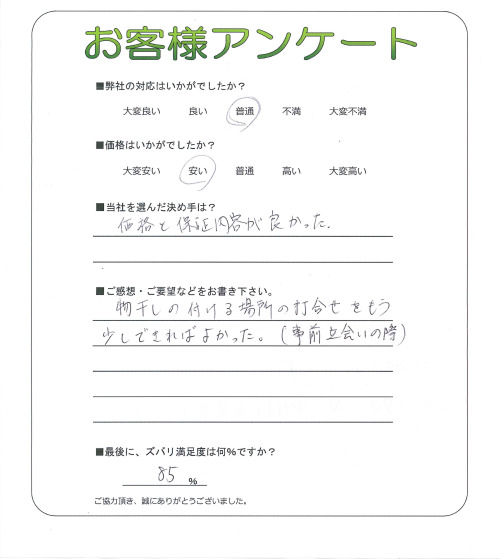 お客様アンケート
■弊社の対応はいかがでしたか？
大変良い 良い 普通 不満 大変不満
■価格はいかがでしたか？
大変安い 安い 普通 高い 大変高い
■当社を選んだ決め手は？
価格と保証内容が良かった.
■ご感想・ご要望などをお書き下さい。
物干しの付ける場所の打合せをもう
少しできればよかった。(事前立会いの時)
■最後に、ズバリ満足度は何%ですか？
85 %
ご協力頂き、誠にありがとうございました。